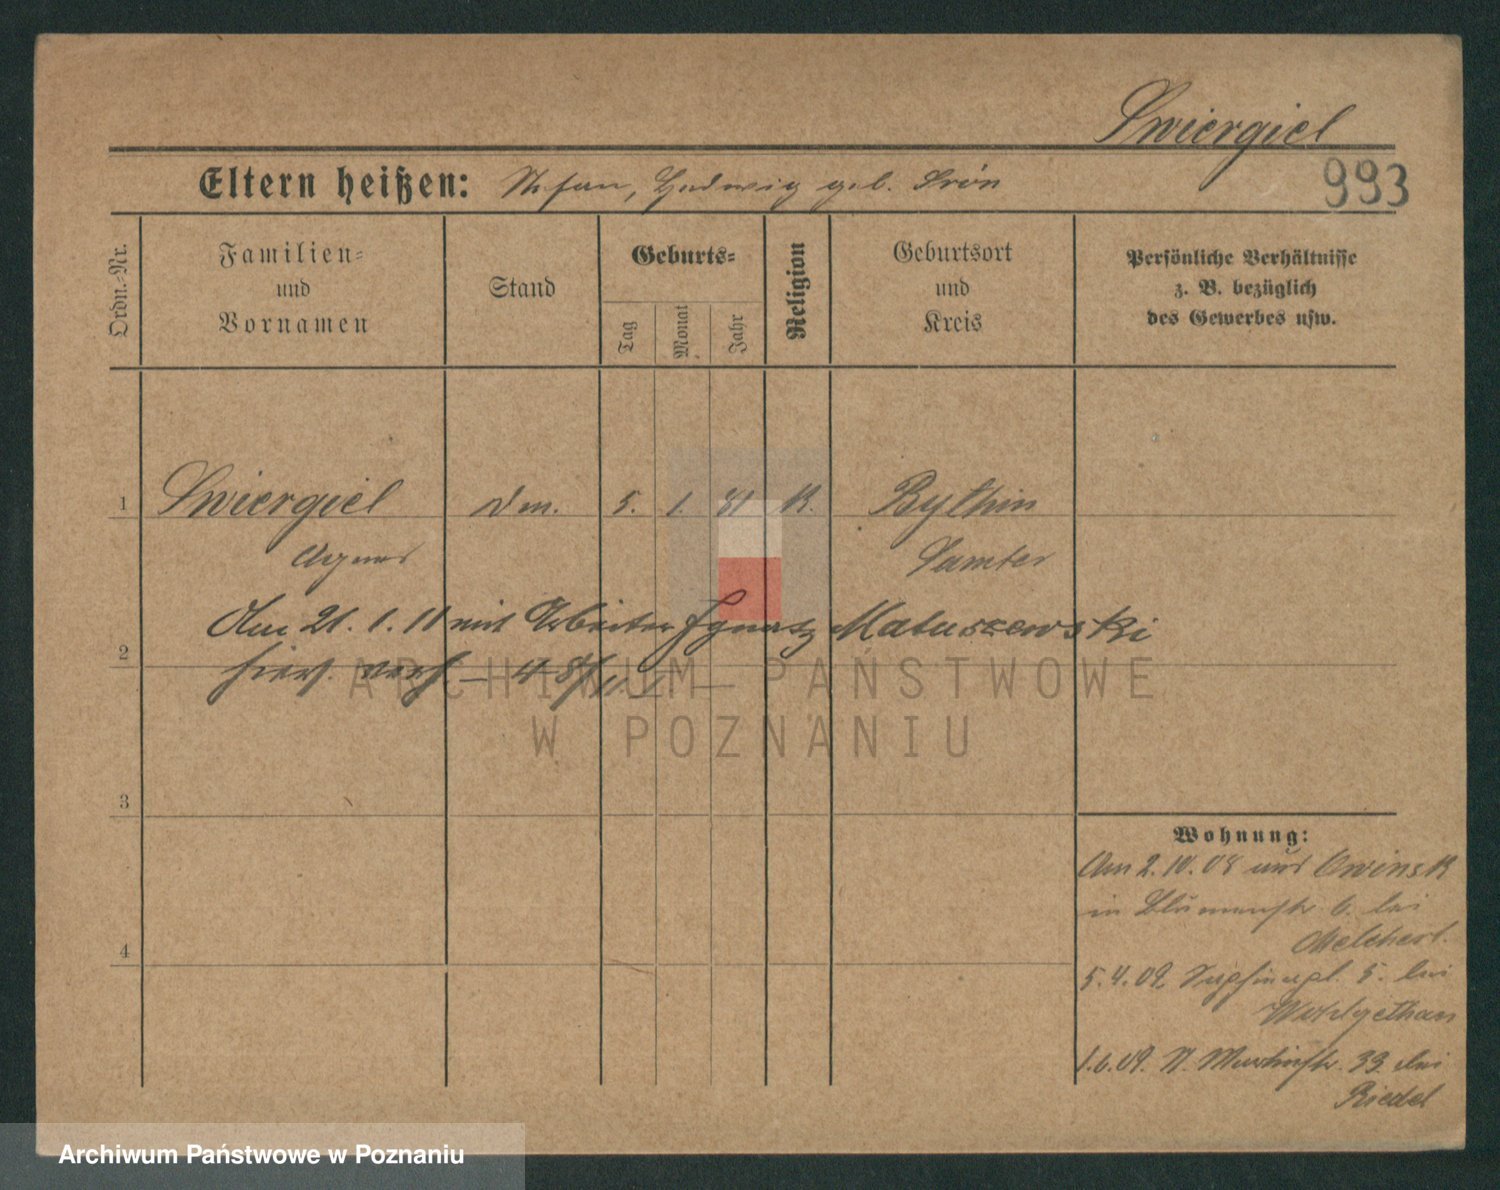 Swiergiel
Eltern heißen: Stefan, Hedwig geb. Sroń
993
Ordn.-Nr.
Familien-
und
Vornamen
Stand
Geburts-
Tag
Monat
Jahr
Religion
Geburtsort
und
Kreis
Persönliche Verhältnisse
z. B. bezüglich
des Gewerbes usw.
1 Swiergiel dm. 5. 1. 81 K. Bythin
Agnes Samter
Am 21. 1. 11 mit Arbeiter Ignatz Matuszewski
2
hier verh
ARCHIWUM PAŃSTWOWE
W POZNANIU
3
4
Wohnung:
Am 2.10.08 aus Owinsk
in Blumenstr. 6. bei
Melchert.
5.4.09 5. bei
Wohlgethan
1.6.09. St. Martinstr. 33 bei
Riedel
Archiwum Państwowe w Poznaniu